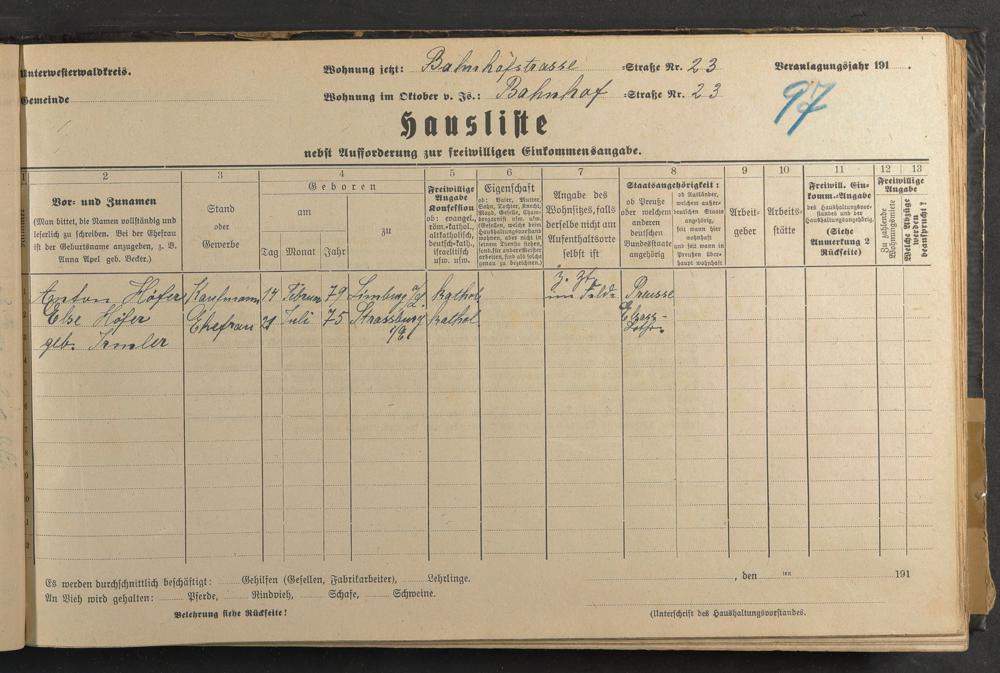 Unterwesterwaldkreis.
Wohnung jetzt: Bahnhofstrasse Straße Nr. 23
Veranlagungsjahr 191 .
Gemeinde
Wohnung im Oktober v. Js.: Bahnhof Straße Nr. 23
97
Hausliste
nebst Aufforderung zur freiwilligen Einkommensangabe.
1 2 3 4 5 6 7 8 9 10 11 12 13
Vor- und Zunamen
(Man bittet, die Namen vollständig und
leserlich zu schreiben. Bei der Ehefrau
ist der Geburtsname anzugeben, z. B.
Anna Apel geb. Becker.)
Stand
oder
Gewerbe
Geboren
am
zu
Tag Monat Jahr
Freiwillige
Angabe
Konfession
ob: evangel.,
röm.-kathol.,
altkatholisch,
deutsch-kath.,
israelitisch
usw. usw.
Eigenschaft
ob: Vater, Mutter,
Sohn, Tochter, Knecht,
Magd, Geselle, Cham-
bregarnist usw. usw.
(Gesellen, welche beim
Haushaltungsvorstand
wohnen, aber nicht in
seinem Dienste stehen,
sond. für andere Meister
arbeiten, sind als solche
genau zu bezeichnen.)
Angabe des
Wohnsitzes, falls
derselbe nicht am
Aufenthaltsorte
selbst ist
Staatsangehörigkeit:
ob Preuße
oder welchem
anderen
deutschen
Bundesstaate
angehörig
ob Ausländer,
welchem außer-
deutschen Staate
angehörig,
seit wann hier
wohnhaft
und seit wann in
Preußen über-
haupt wohnhaft
Arbeit-
geber
Arbeits-
stätte
Freiwill. Ein-
komm.-Angabe
des Haushaltungsvor-
standes und der
Haushaltungsangehörig.
(Siehe
Anmerkung 2
Rückseite)
Freiwillige
Angabe
Zu zahlende
Wohnungsmiete
Welche Abzüge
werden
beansprucht?
Anton Höfer Kaufmann 14 Februar 79 Limburg a/L kathol. z. Zt. im Felde Preusse
Else Höfer Ehefrau 21 Juli 75 Strassburg i/E kathol. Elsass-
Lothr.
geb. Irmler
Es werden durchschnittlich beschäftigt: Gehilfen (Gesellen, Fabrikarbeiter), Lehrlinge.
An Vieh wird gehalten: Pferde, Rindvieh, Schafe, Schweine.
, den ten 191
Belehrung siehe Rückseite!
(Unterschrift des Haushaltungsvorstandes.